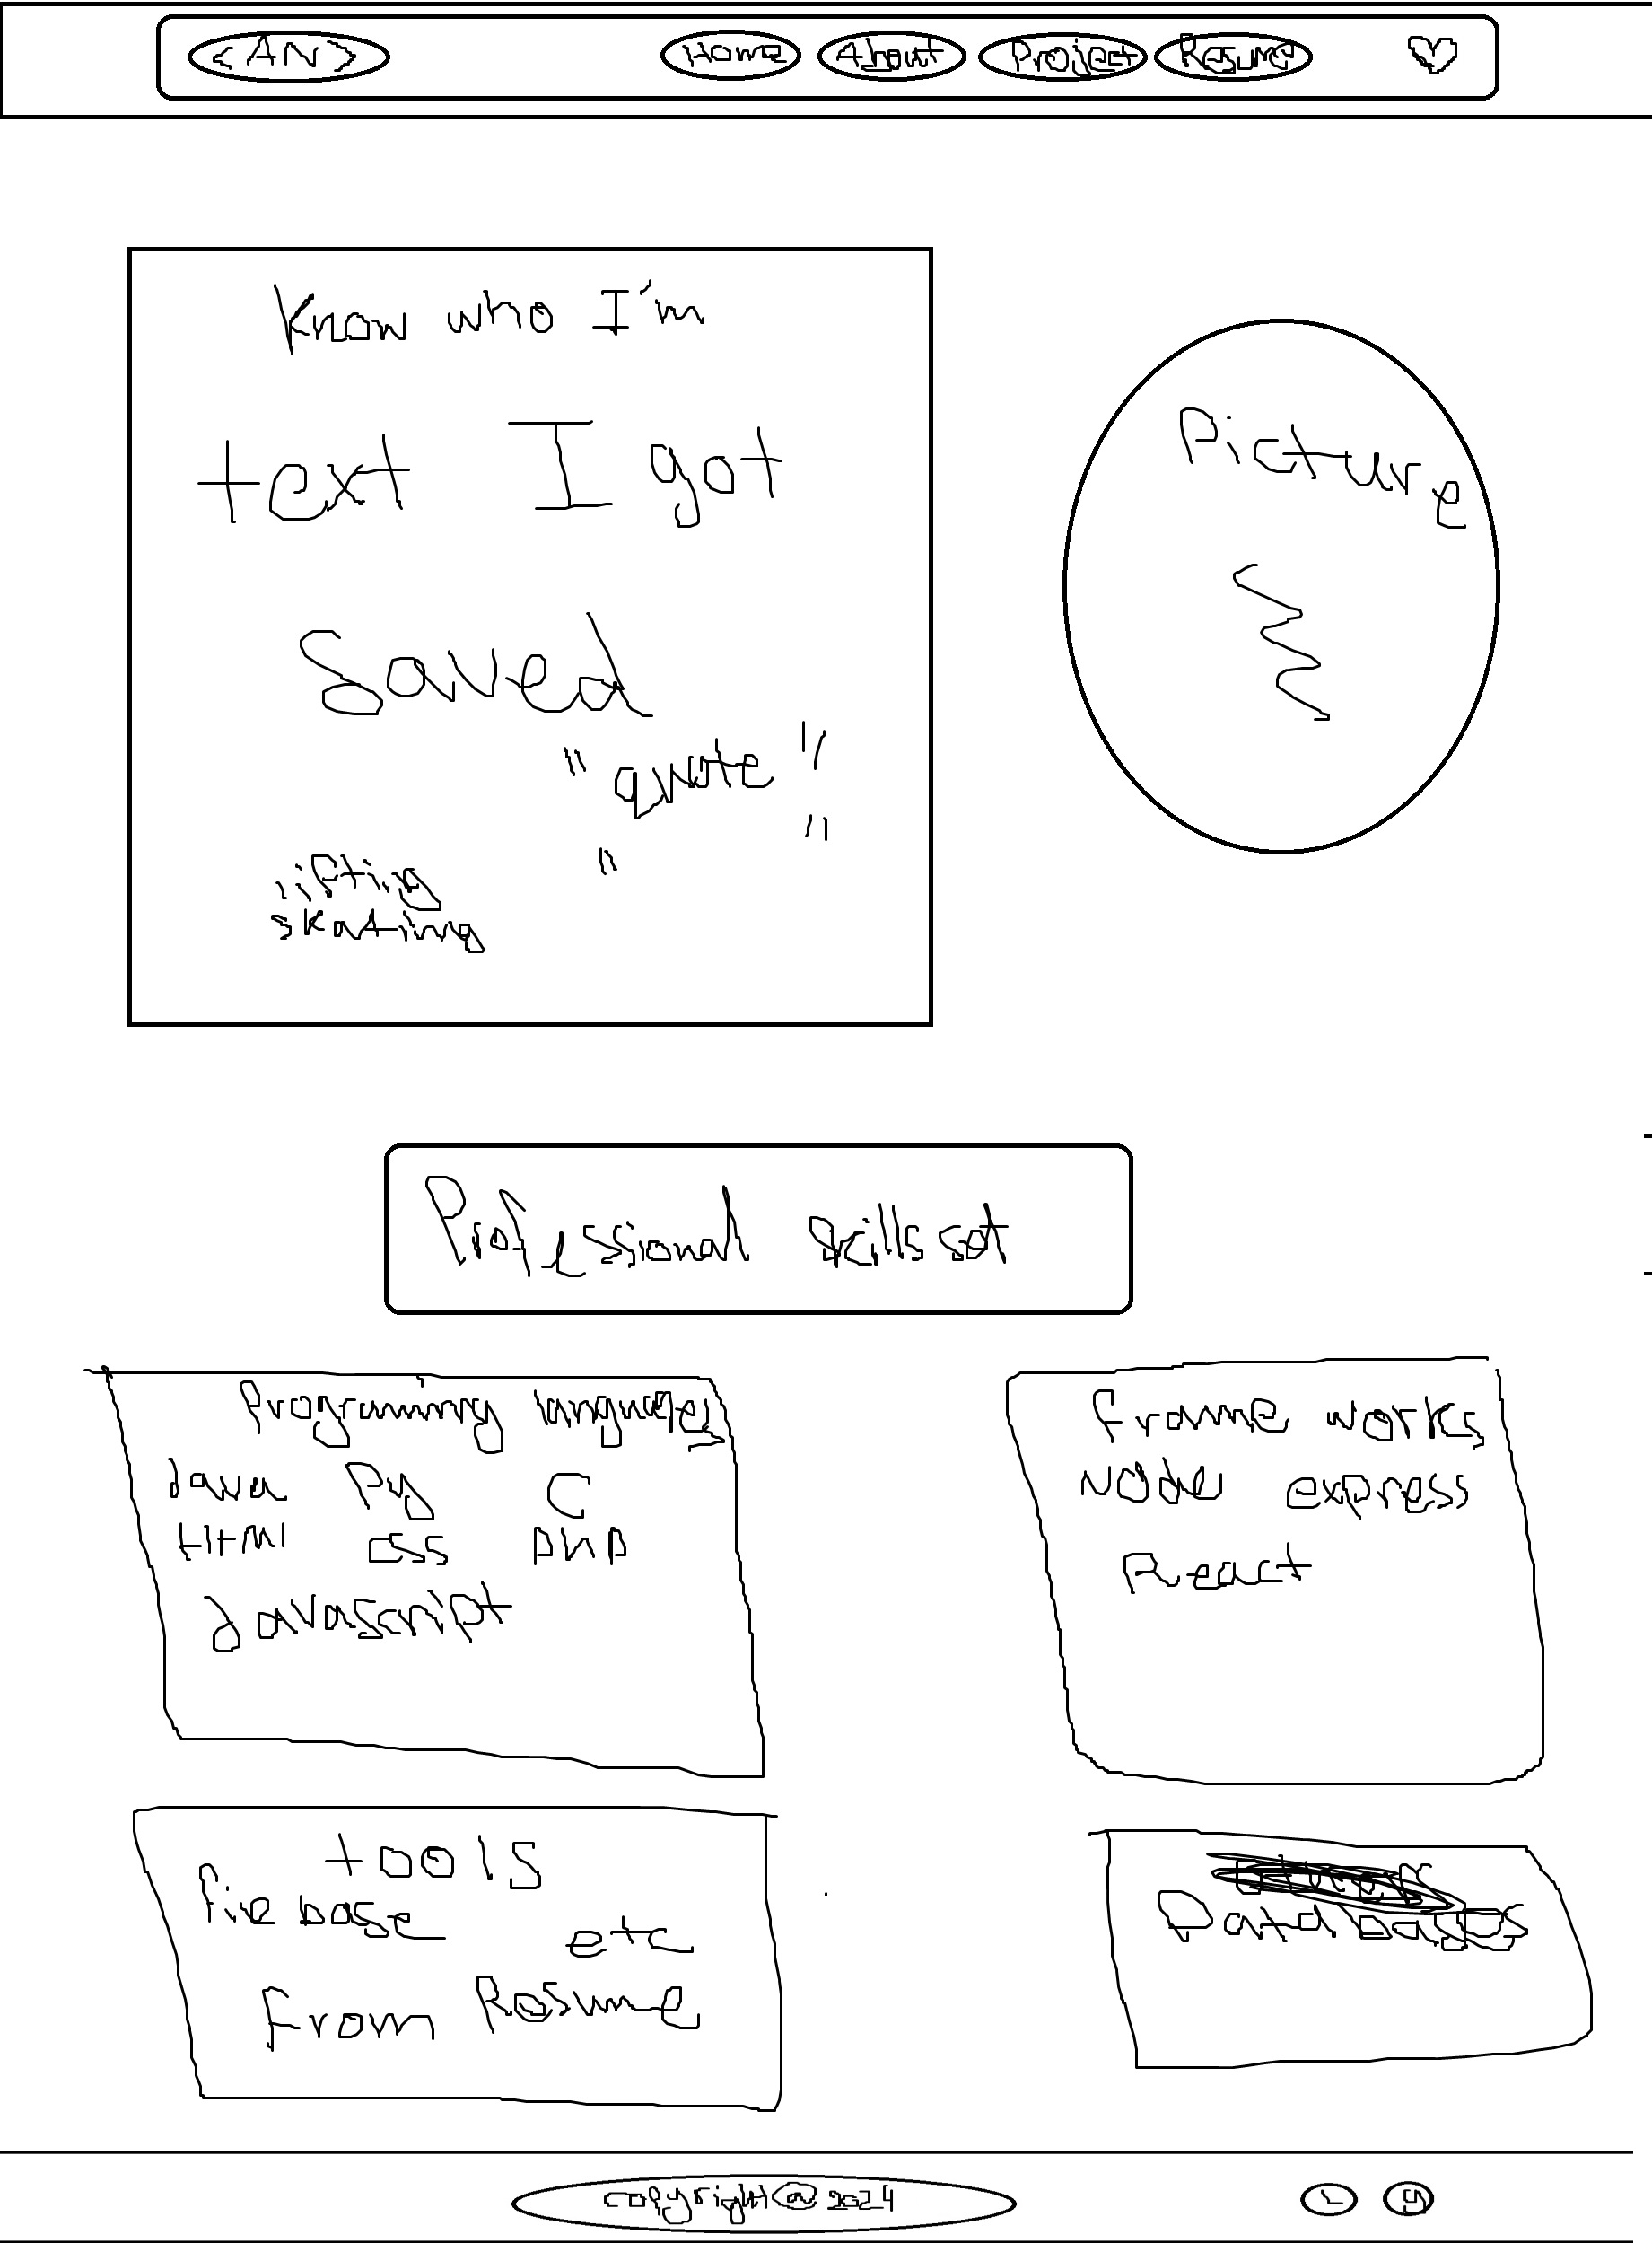 <AN> Home About Project Resume
Know who I'm
text I got
Saved
"quote"
" "
lifting
skating
Picture
Professional skills set
Programming languages
Java Py C
HTML CSS PHP
Javascript
Frame works
Node express
React
tools
firebase etc
From Resume
Databases
copyright@2024